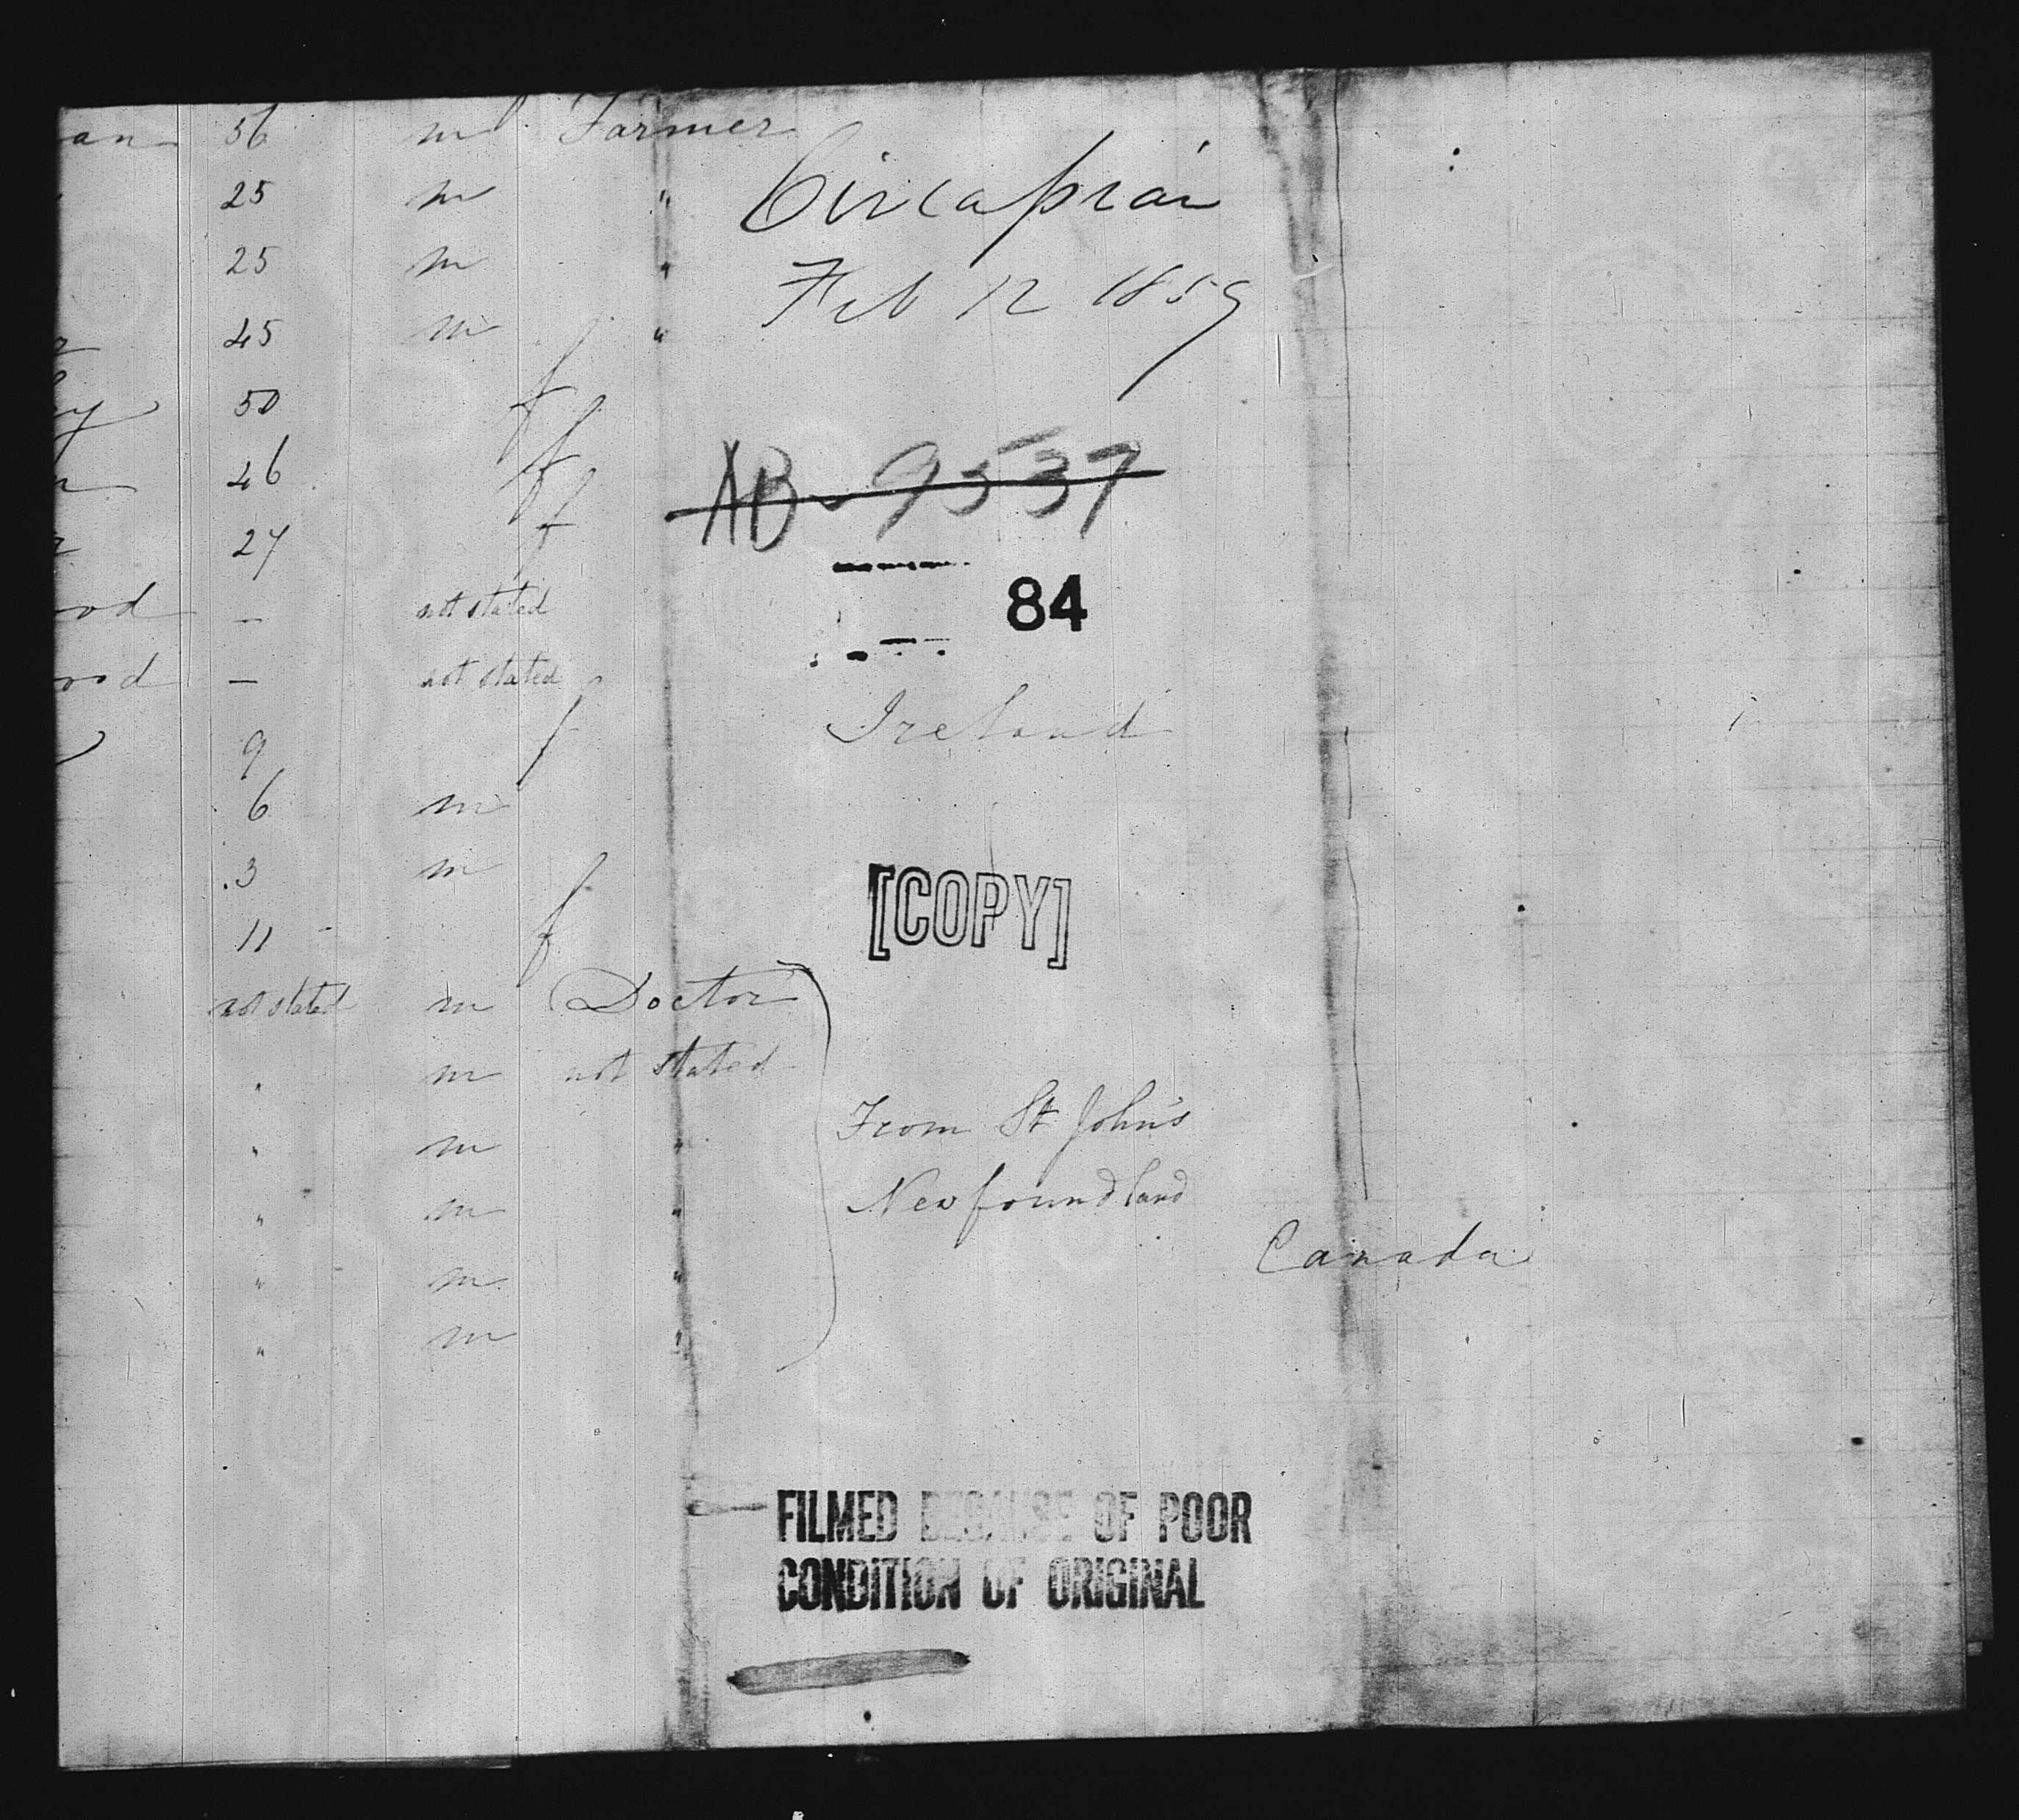 an 56 m Farmer
25 m "
25 m "
45 m "
50 f
46 f
27 f
od - not stated
ood - not stated
9 f
6 m
3 m
11 f
not stated m Doctor
" m not stated
" m "
" m "
" m "
" m "
Circassian
Feb 12 1859
AB-9537
84
Ireland
[COPY]
From St John's
Newfoundland
Canada
FILMED BECAUSE OF POOR
CONDITION OF ORIGINAL